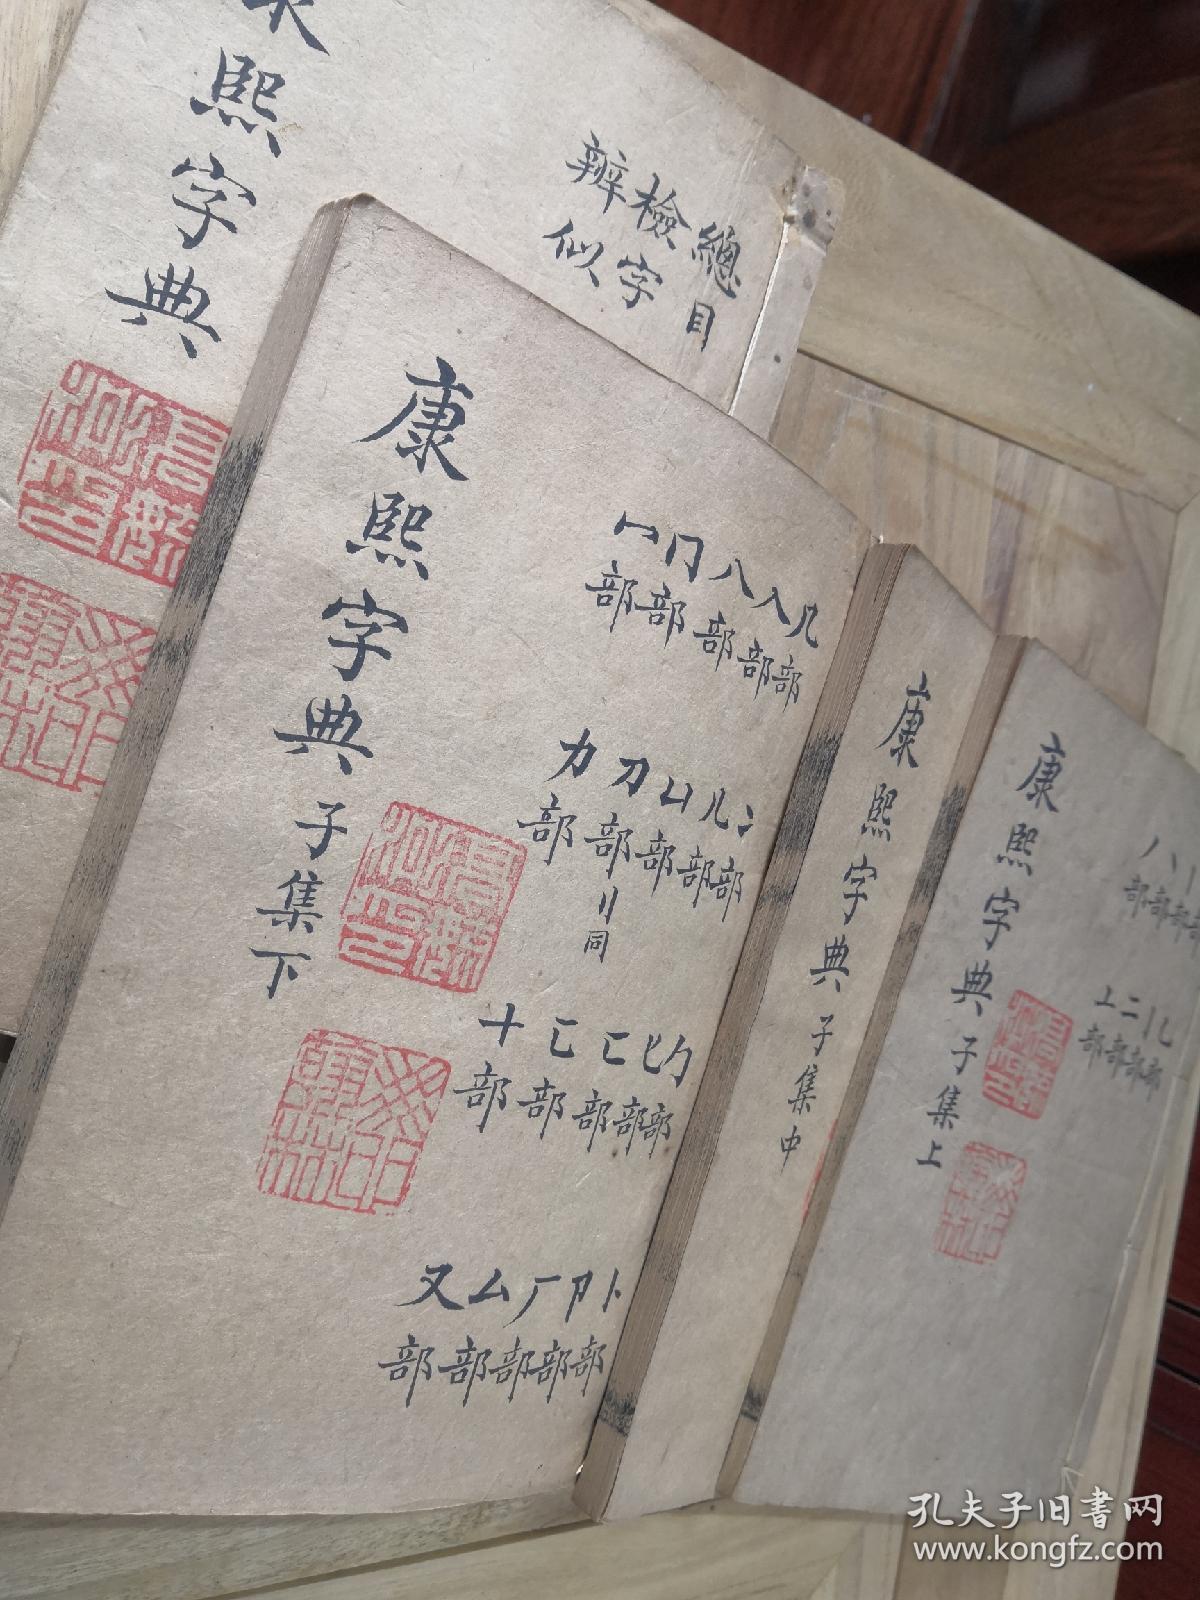 熙字典
總目
檢字
辨似
康熙字典子集下
几部
入部
八部
冂部
冖部
冫部
几部
凵部
刀部 刂同
力部
勹部
匕部
匚部
匸部
十部
卜部
卩部
厂部
厶部
又部
康熙字典子集中
康熙字典子集上
孔夫子旧书网
www.kongfz.com